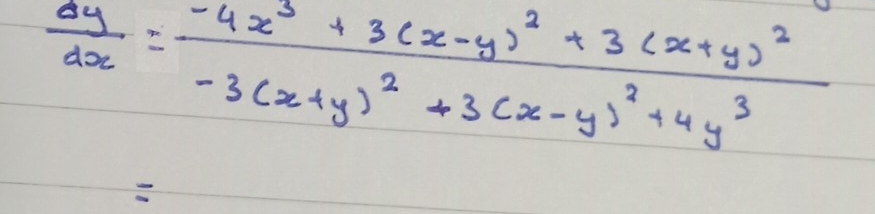 dy/dx = (-4x³ + 3(x-y)² + 3(x+y)²) / (-3(x+y)² + 3(x-y)² + 4y³)
=